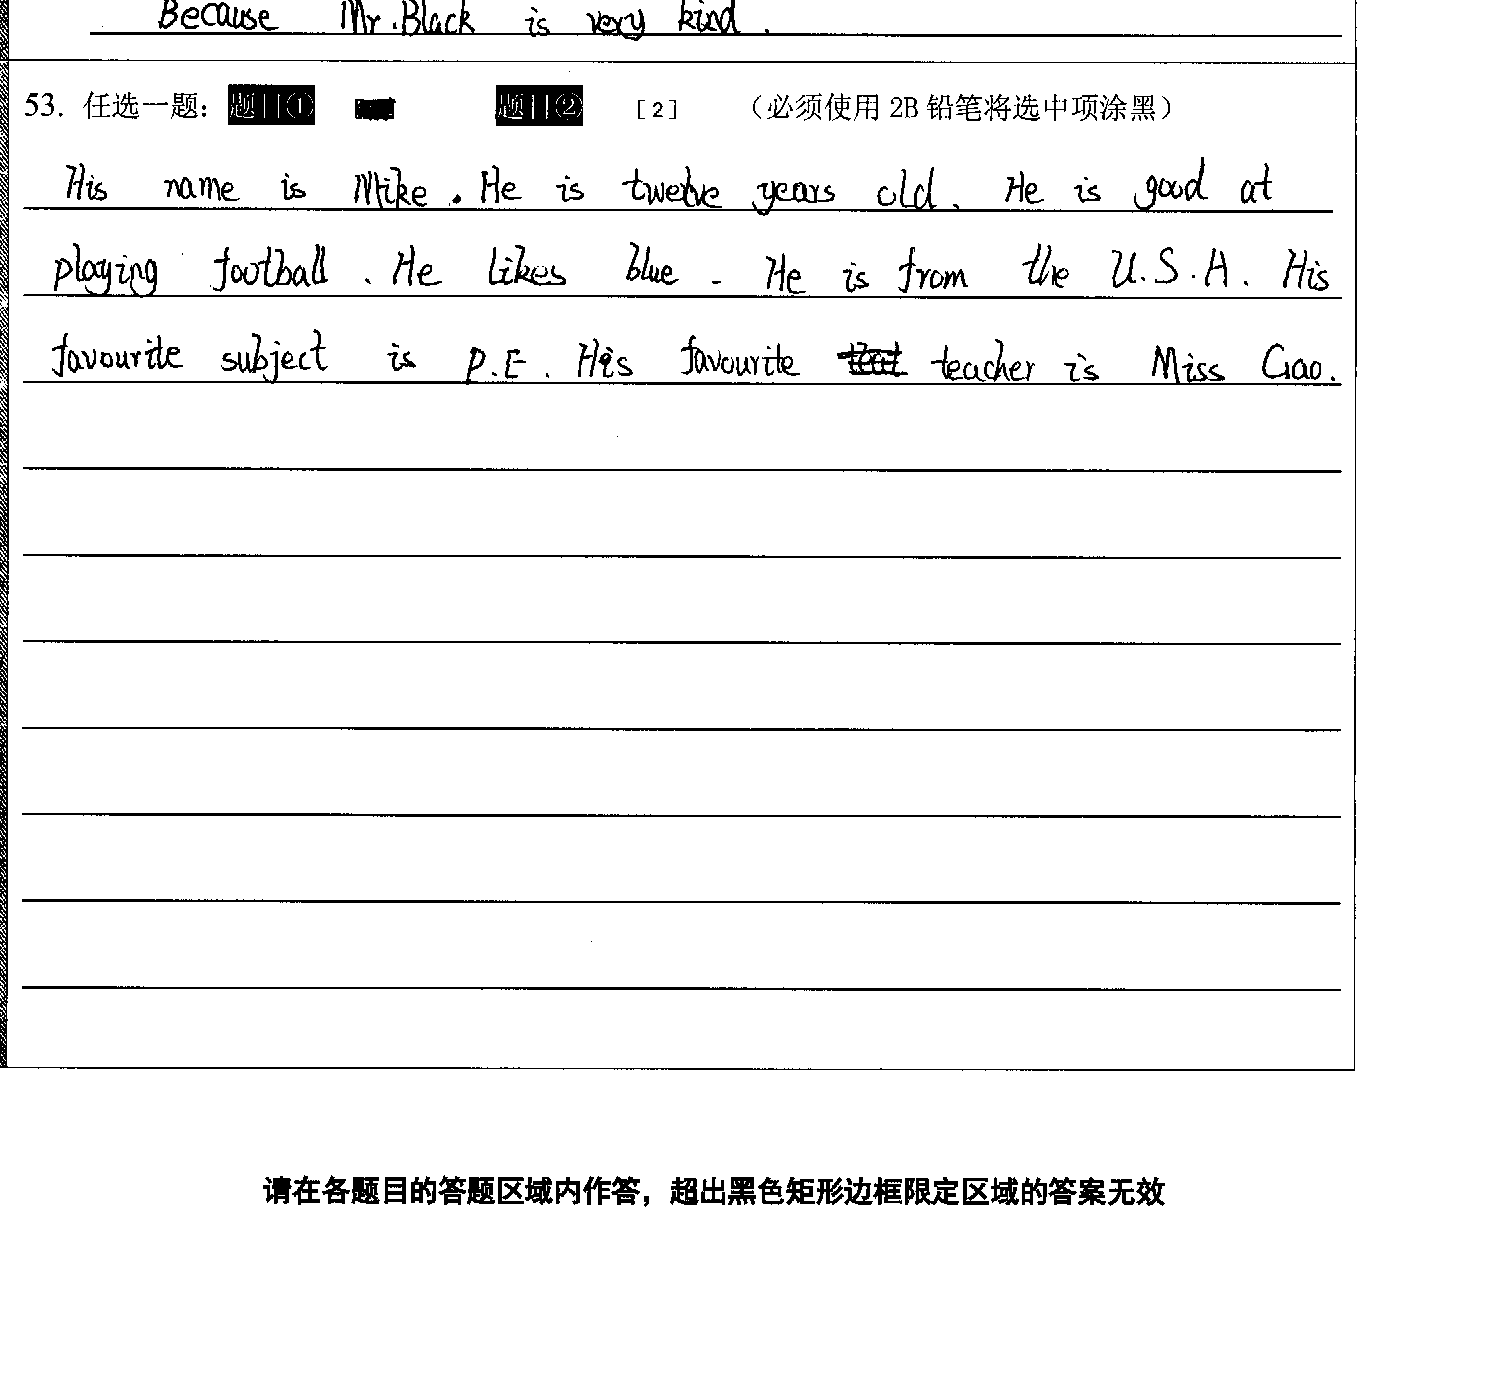 Because Mr.Black is very kind.
53. 任选一题： 题目① 题目② [2] （必须使用 2B 铅笔将选中项涂黑）
His name is Mike. He is twelve years old. He is good at
playing football. He likes blue. He is from the U.S.A. His
favourite subject is P.E. His favourite teacher is Miss Gao.
请在各题目的答题区域内作答，超出黑色矩形边框限定区域的答案无效